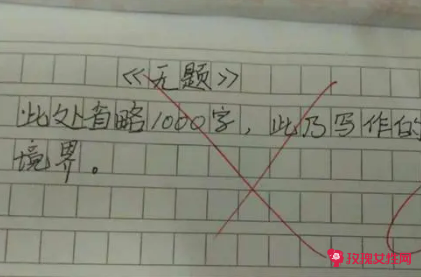 《无题》
此处省略1000字，此乃写作的
境界。
玫瑰女性网